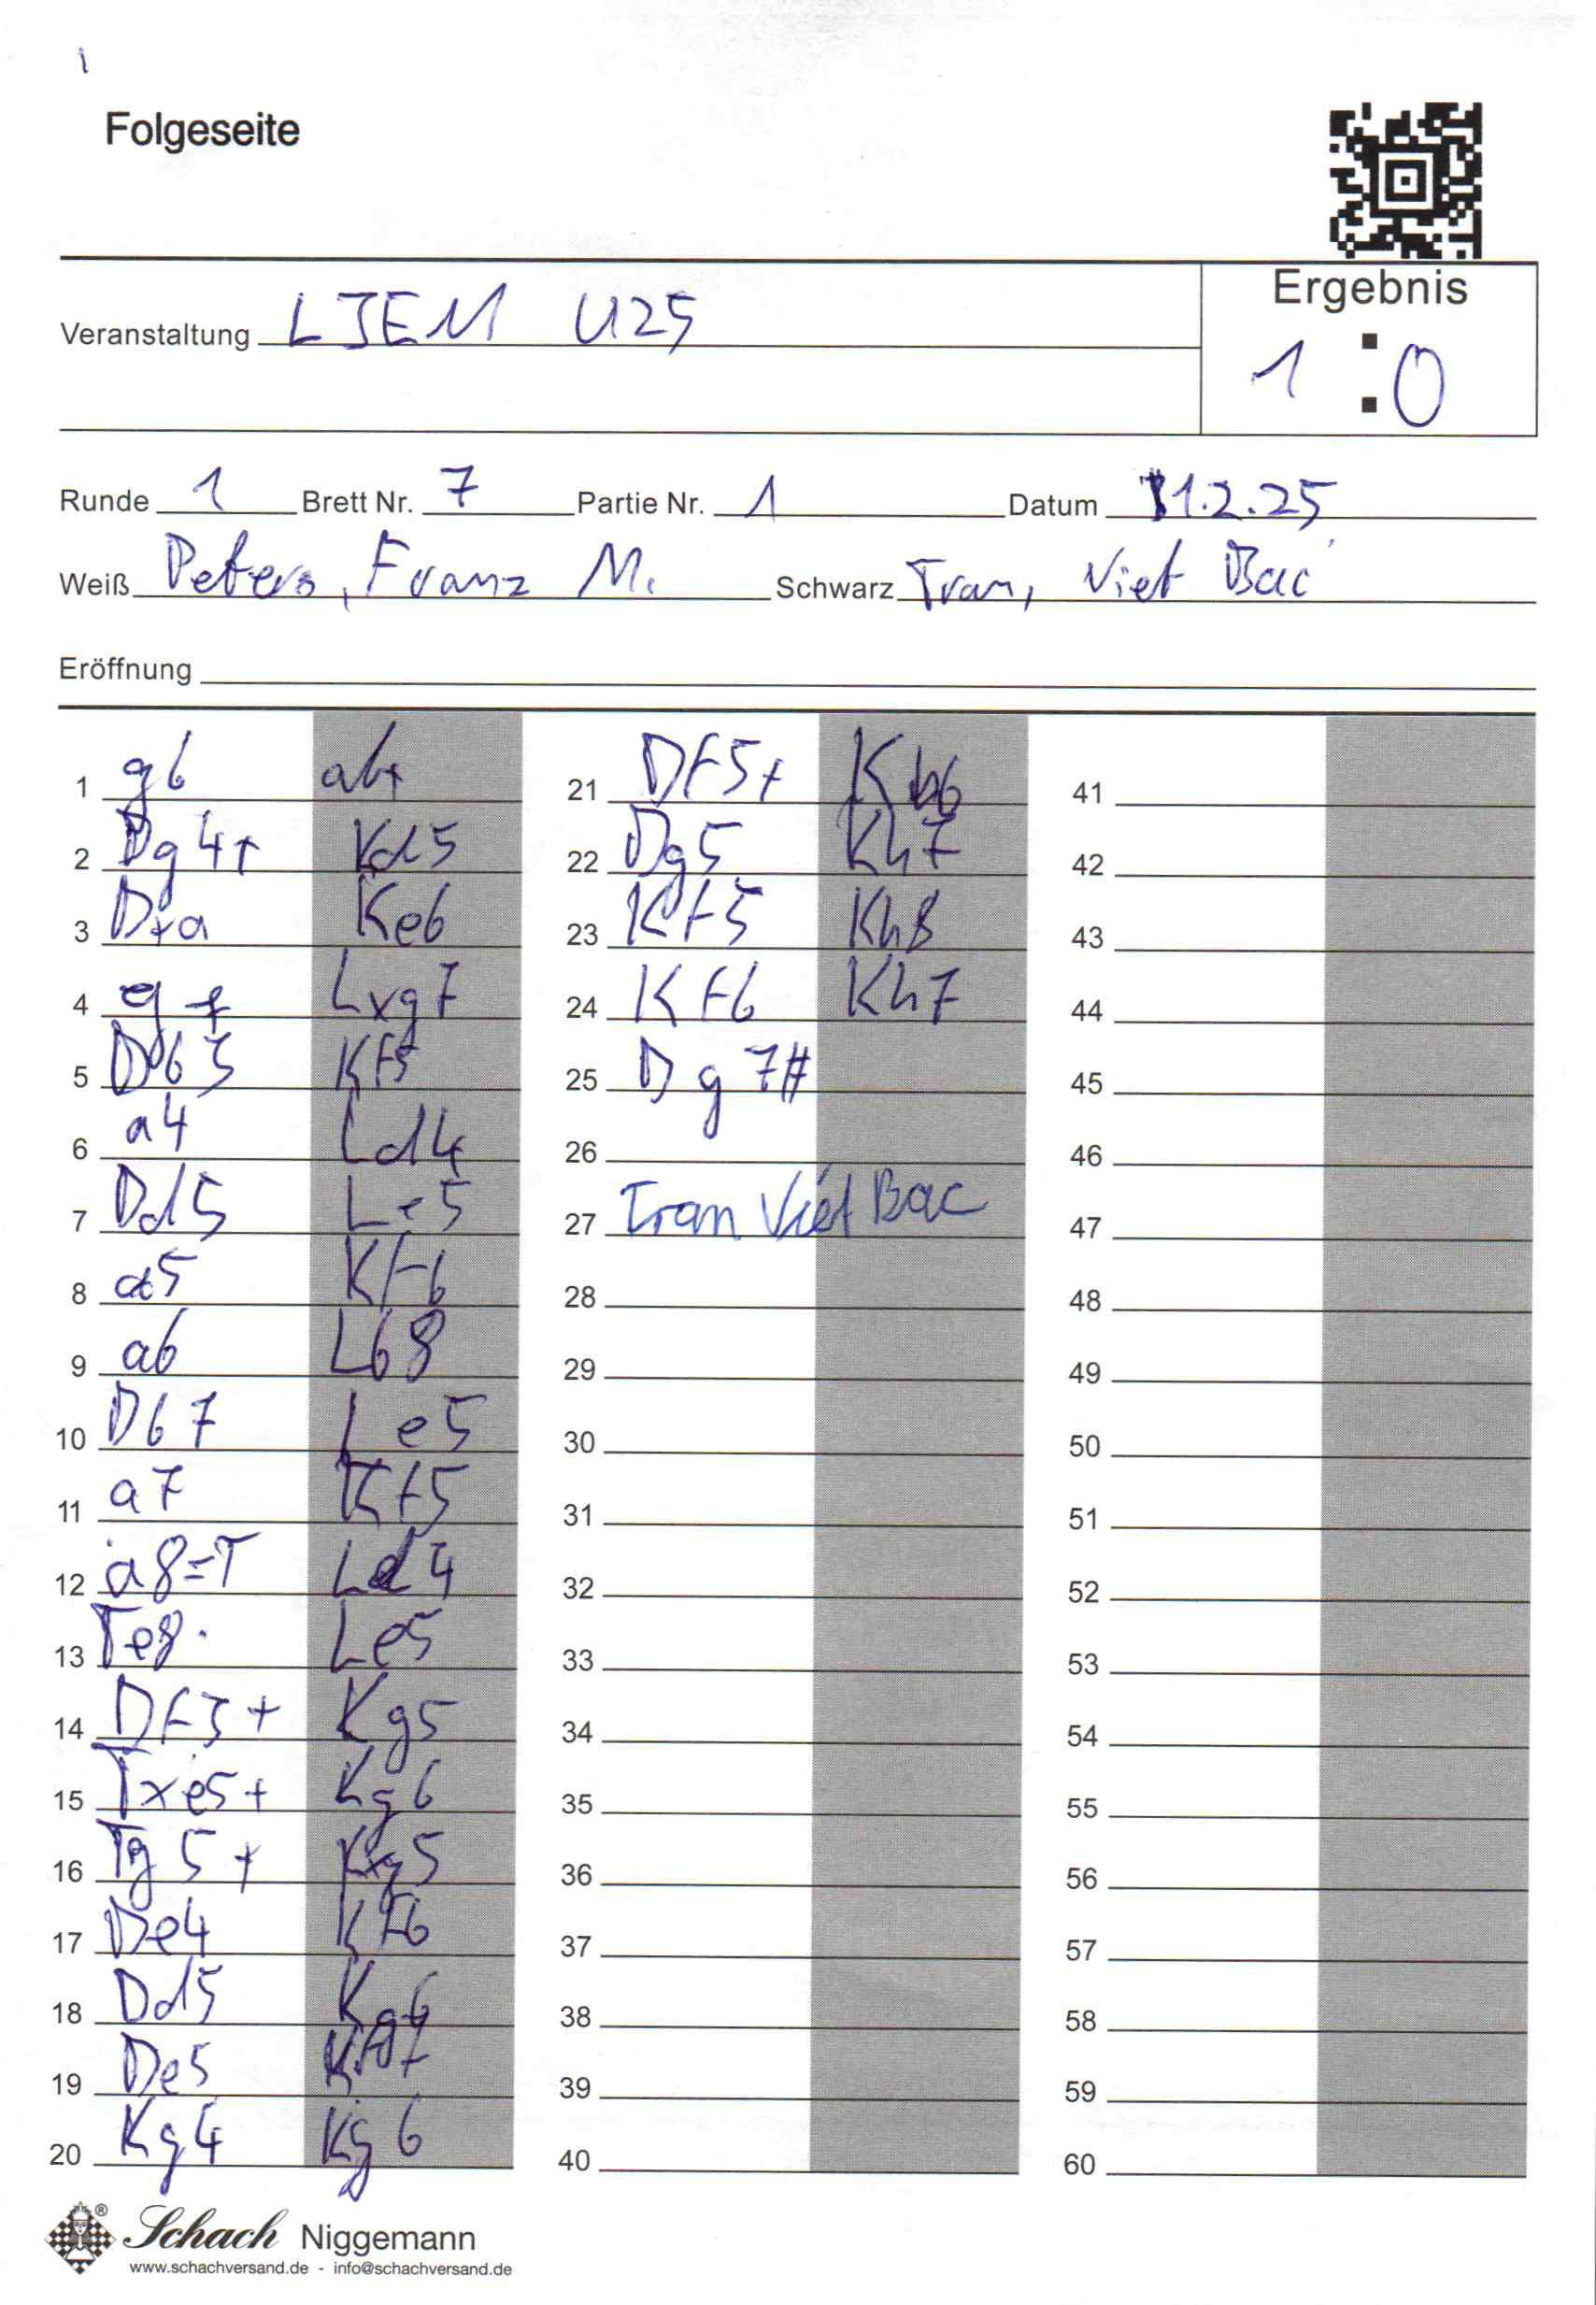 Folgeseite
Veranstaltung LJEM U25
Ergebnis
1 : 0
Runde 1 Brett Nr. 7 Partie Nr. 1 Datum 1.2.25
Weiß Peters, Franz M. Schwarz Tran, Viet Bac
Eröffnung
1 g6
2 Dg4+ Kd5
3 Dxa Ke6
4 g7 Lxg7
5 Db3 Kf5
6 a4 Ld4
7 Dd5 Le5
8 a5 Kf6
9 a6 Lb8
10 Db7 Le5
11 a7 Kf5
12 a8=T Ld4
13 Te8 Le5
14 Df3+ Kg5
15 Txe5+ Kg6
16 Tg5+ Kxg5
17 De4 Kf6
18 Dd5 Kg6
19 De5 Kf7
20 Kg4 Kg6
21 Df5+ Kh6
22 Dg5 Kh7
23 Kf5 Kh8
24 Kf6 Kh7
25 Dg7#
26
27 Tran Viet Bac
28
29
30
31
32
33
34
35
36
37
38
39
40
41
42
43
44
45
46
47
48
49
50
51
52
53
54
55
56
57
58
59
60
Schach Niggemann
www.schachversand.de - info@schachversand.de